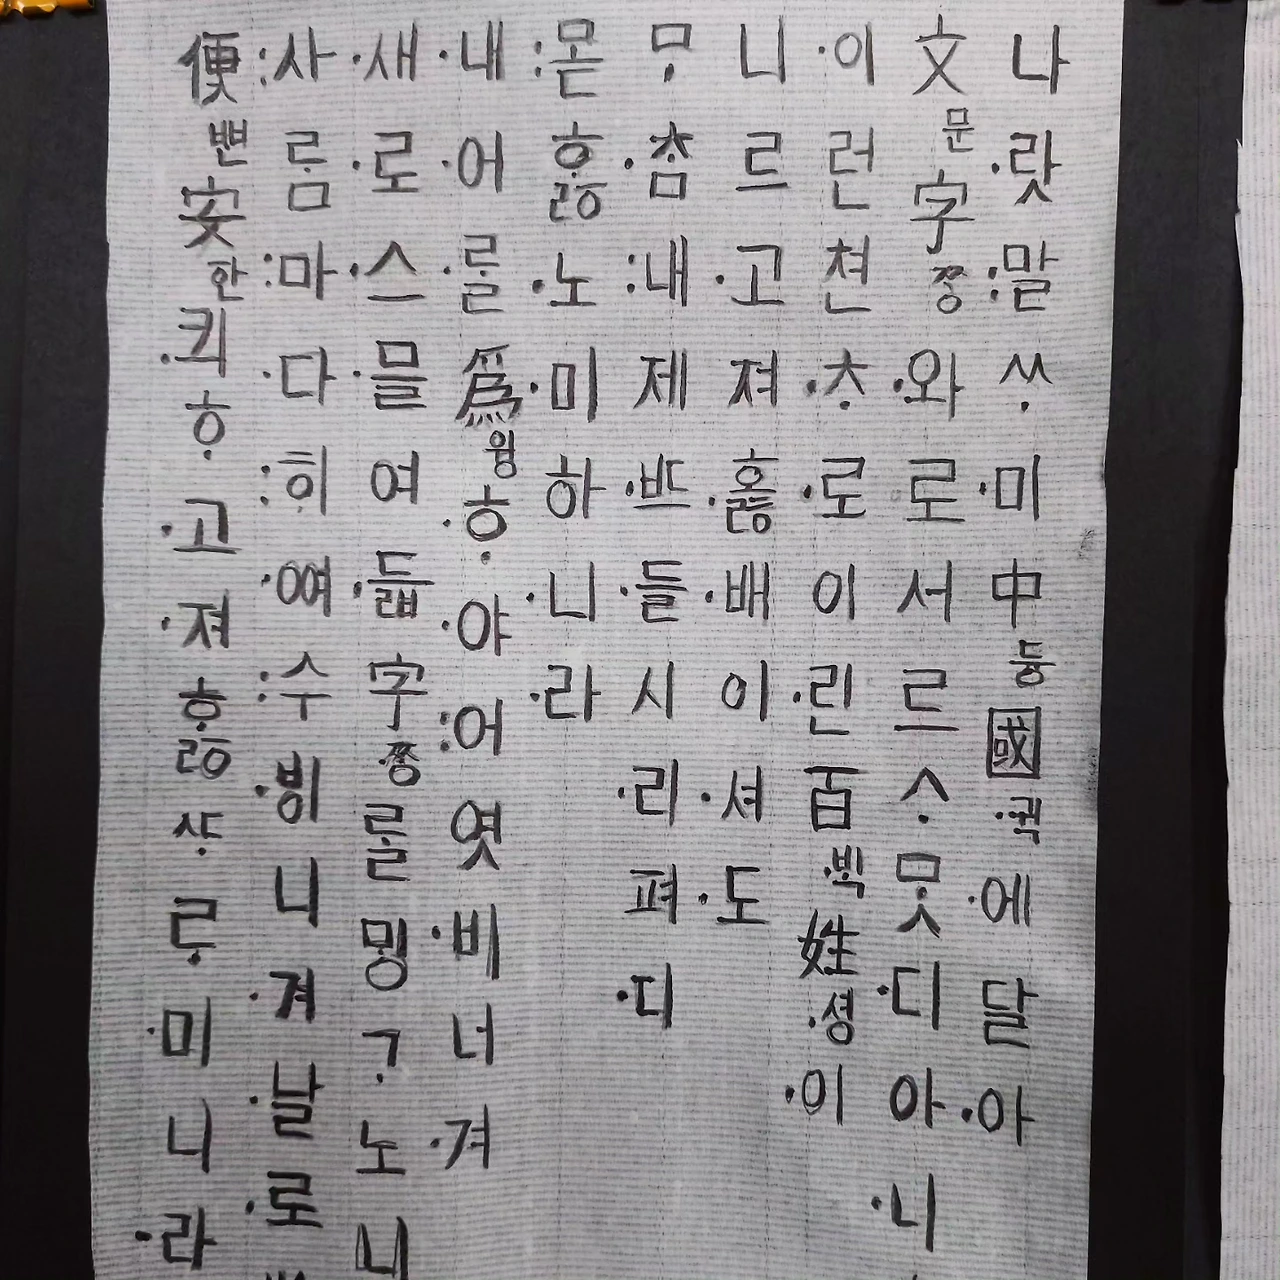 나·랏:말ᄊᆞ·미中듕國·귁·에달·아
文문字ᄍᆞᆼ·와로서르ᄉᆞᄆᆞᆺ·디아·니
·이런쳔·ᄎᆞ·로이·린百·ᄇᆡᆨ姓·셩·이
니르·고져·호ᇙ·배이·셔·도
ᄆᆞ·ᄎᆞᆷ:내제·ᄠᅳ·들시·리펴·디
:몯ᄒᆞᇙ·노·미하·니·라
·내·어·ᄅᆞᆯ爲윙·ᄒᆞ·야:어엿·비너·겨
·새·로·스·믈여·듧字ᄍᆞᆼᄅᆞᆯᄆᆡᇰᄀᆞ노니
:사ᄅᆞᆷ:마·다:ᄒᆡ·ᅇᅧ:수·ᄫᅵ니·겨·날·로
便뼌安한·킈ᄒᆞ·고·져ᄒᆞᇙᄯᆞᄅᆞ·미니·라